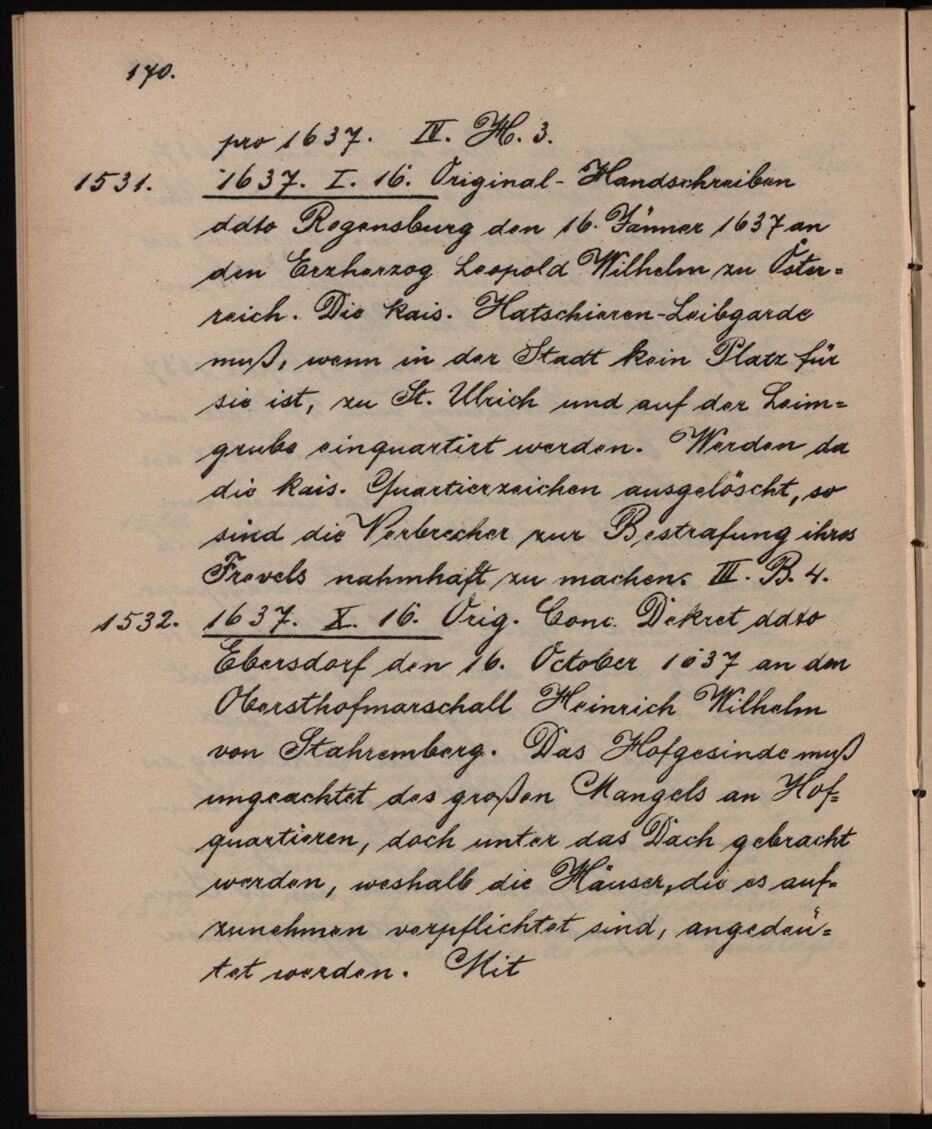 170.
pro 1637. IV. H. 3.
1531. 1637. I. 16. Original-Handschreiben
ddto Regensburg den 16. Jänner 1637 an
den Erzherzog Leopold Wilhelm zu Öster=
reich. Die kais. Hatschieren-Leibgarde
muß, wenn in der Stadt kein Platz für
sie ist, zu St. Ulrich und auf der Leim=
grube einquartirt werden. Werden da
die kais. Quartierzeichen ausgelöscht, so
sind die Verbrecher zur Bestrafung ihres
Frevels nahmhaft zu machen. III. B. 4.
1532. 1637. X. 16. Orig. Conc. Dekret ddto
Ebersdorf den 16. October 1637 an den
Obersthofmarschall Heinrich Wilhelm
von Stahremberg. Das Hofgesinde muß
ungeachtet des großen Mangels an Hof=
quartieren, doch unter das Dach gebracht
werden, weshalb die Häuser, die es auf=
zunehmen verpflichtet sind, angedeü=
tet werden. Mit